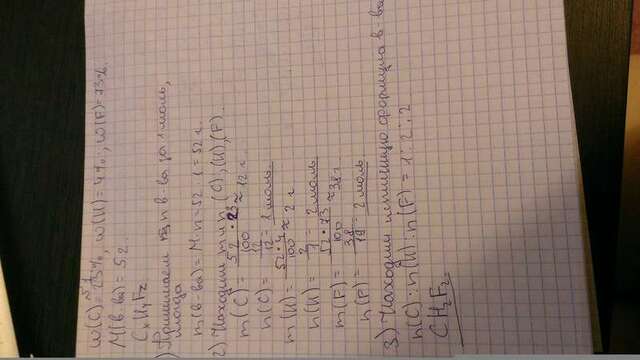 ω(C) = 23%, ω(H) = 4%, ω(F) = 73%.
M(в-ва) = 52.
CxHyFz
1) Принимаем n в-ва за 1 моль,
тогда
m(в-ва) = M·n = 52·1 = 52 г.
2) Находим m и n (C), (H), (F)...
m(C) = 52·23/100 ≈ 12 г.
n(C) = 12/12 = 1 моль.
m(H) = 52·4/100 ≈ 2 г
n(H) = 2/1 = 2 моль
m(F) = 52·73/100 ≈ 38 г
n(F) = 38/19 = 2 моль
3) Находим формулу в-ва
n(C) : n(H) : n(F) = 1 : 2 : 2
CH2F2